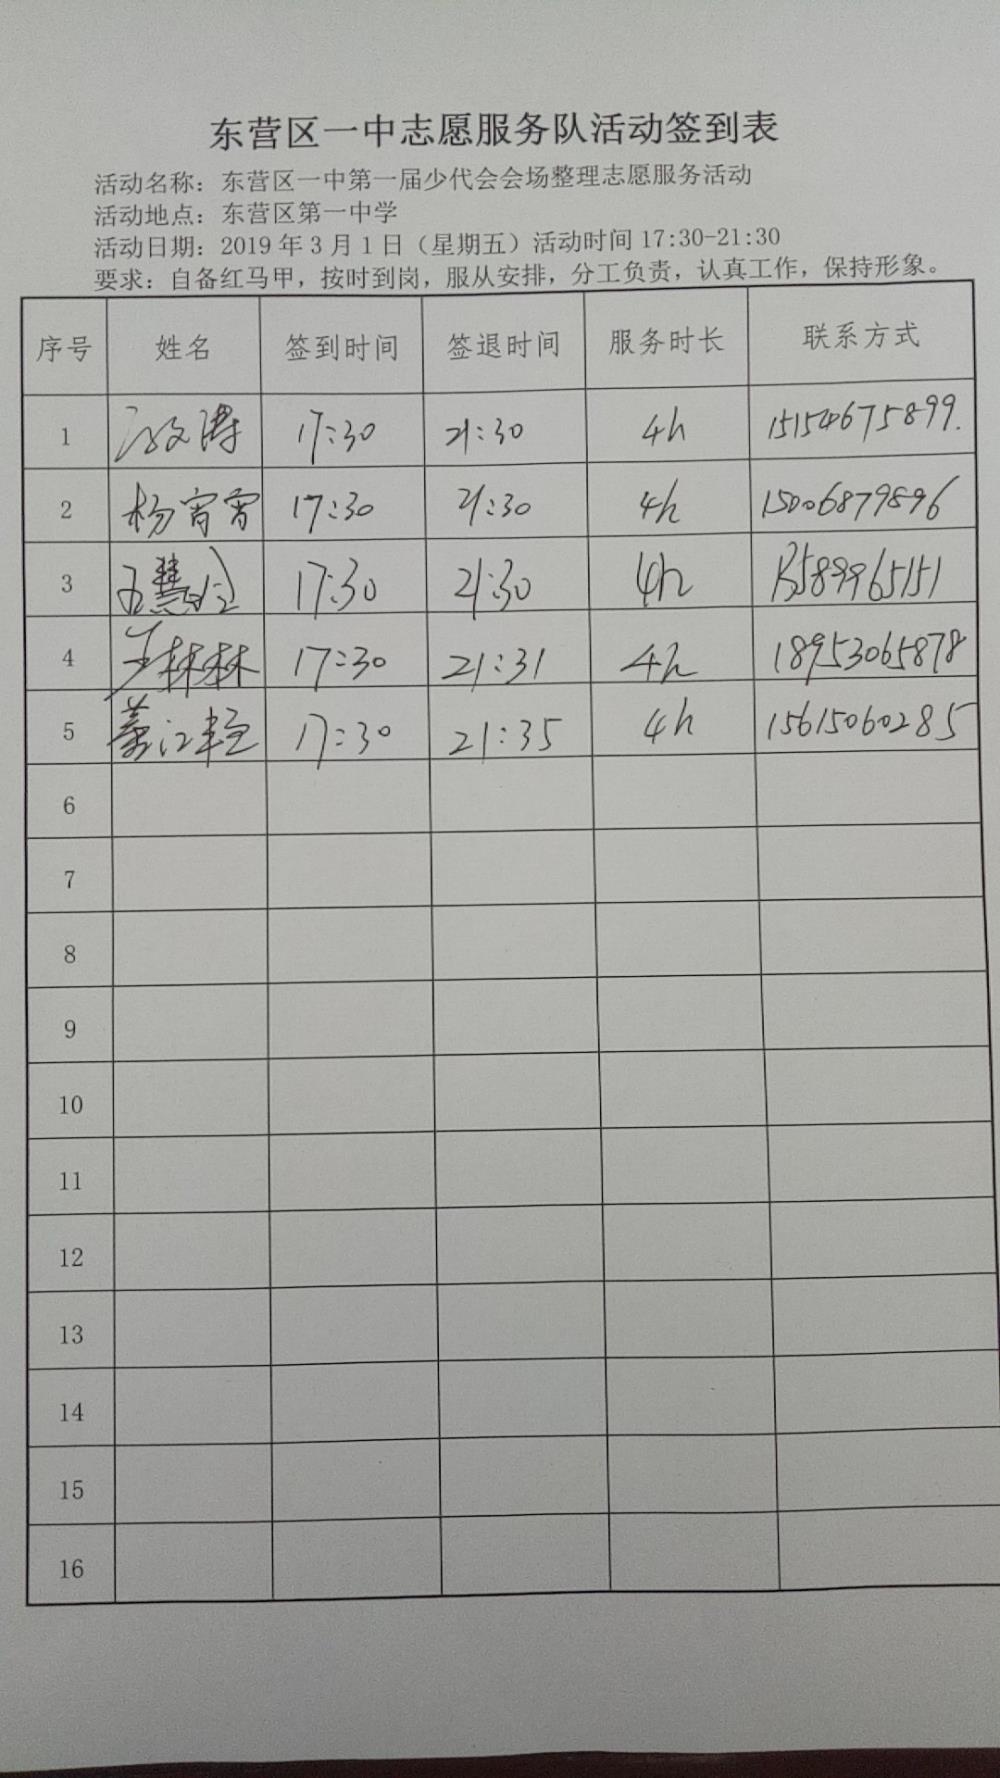 东营区一中志愿服务队活动签到表
活动名称：东营区一中第一届少代会会场整理志愿服务活动
活动地点：东营区第一中学
活动日期：2019年3月1日（星期五）活动时间17:30-21:30
要求：自备红马甲，按时到岗，服从安排，分工负责，认真工作，保持形象。
序号 姓名 签到时间 签退时间 服务时长 联系方式
1 文涛 17:30 21:30 4h 15154675899.
2 杨宵宵 17:30 21:30 4h 15006879896
3 慧 17:30 21:30 4h 13589965151
4 王林林 17:30 21:31 4h 18953065878
5 綦江 17:30 21:35 4h 15615060285
6
7
8
9
10
11
12
13
14
15
16